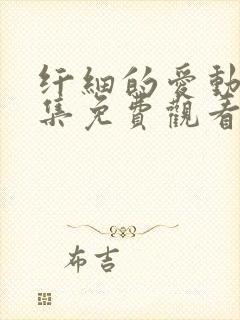 纤細的愛動
集免費觀看
布吉